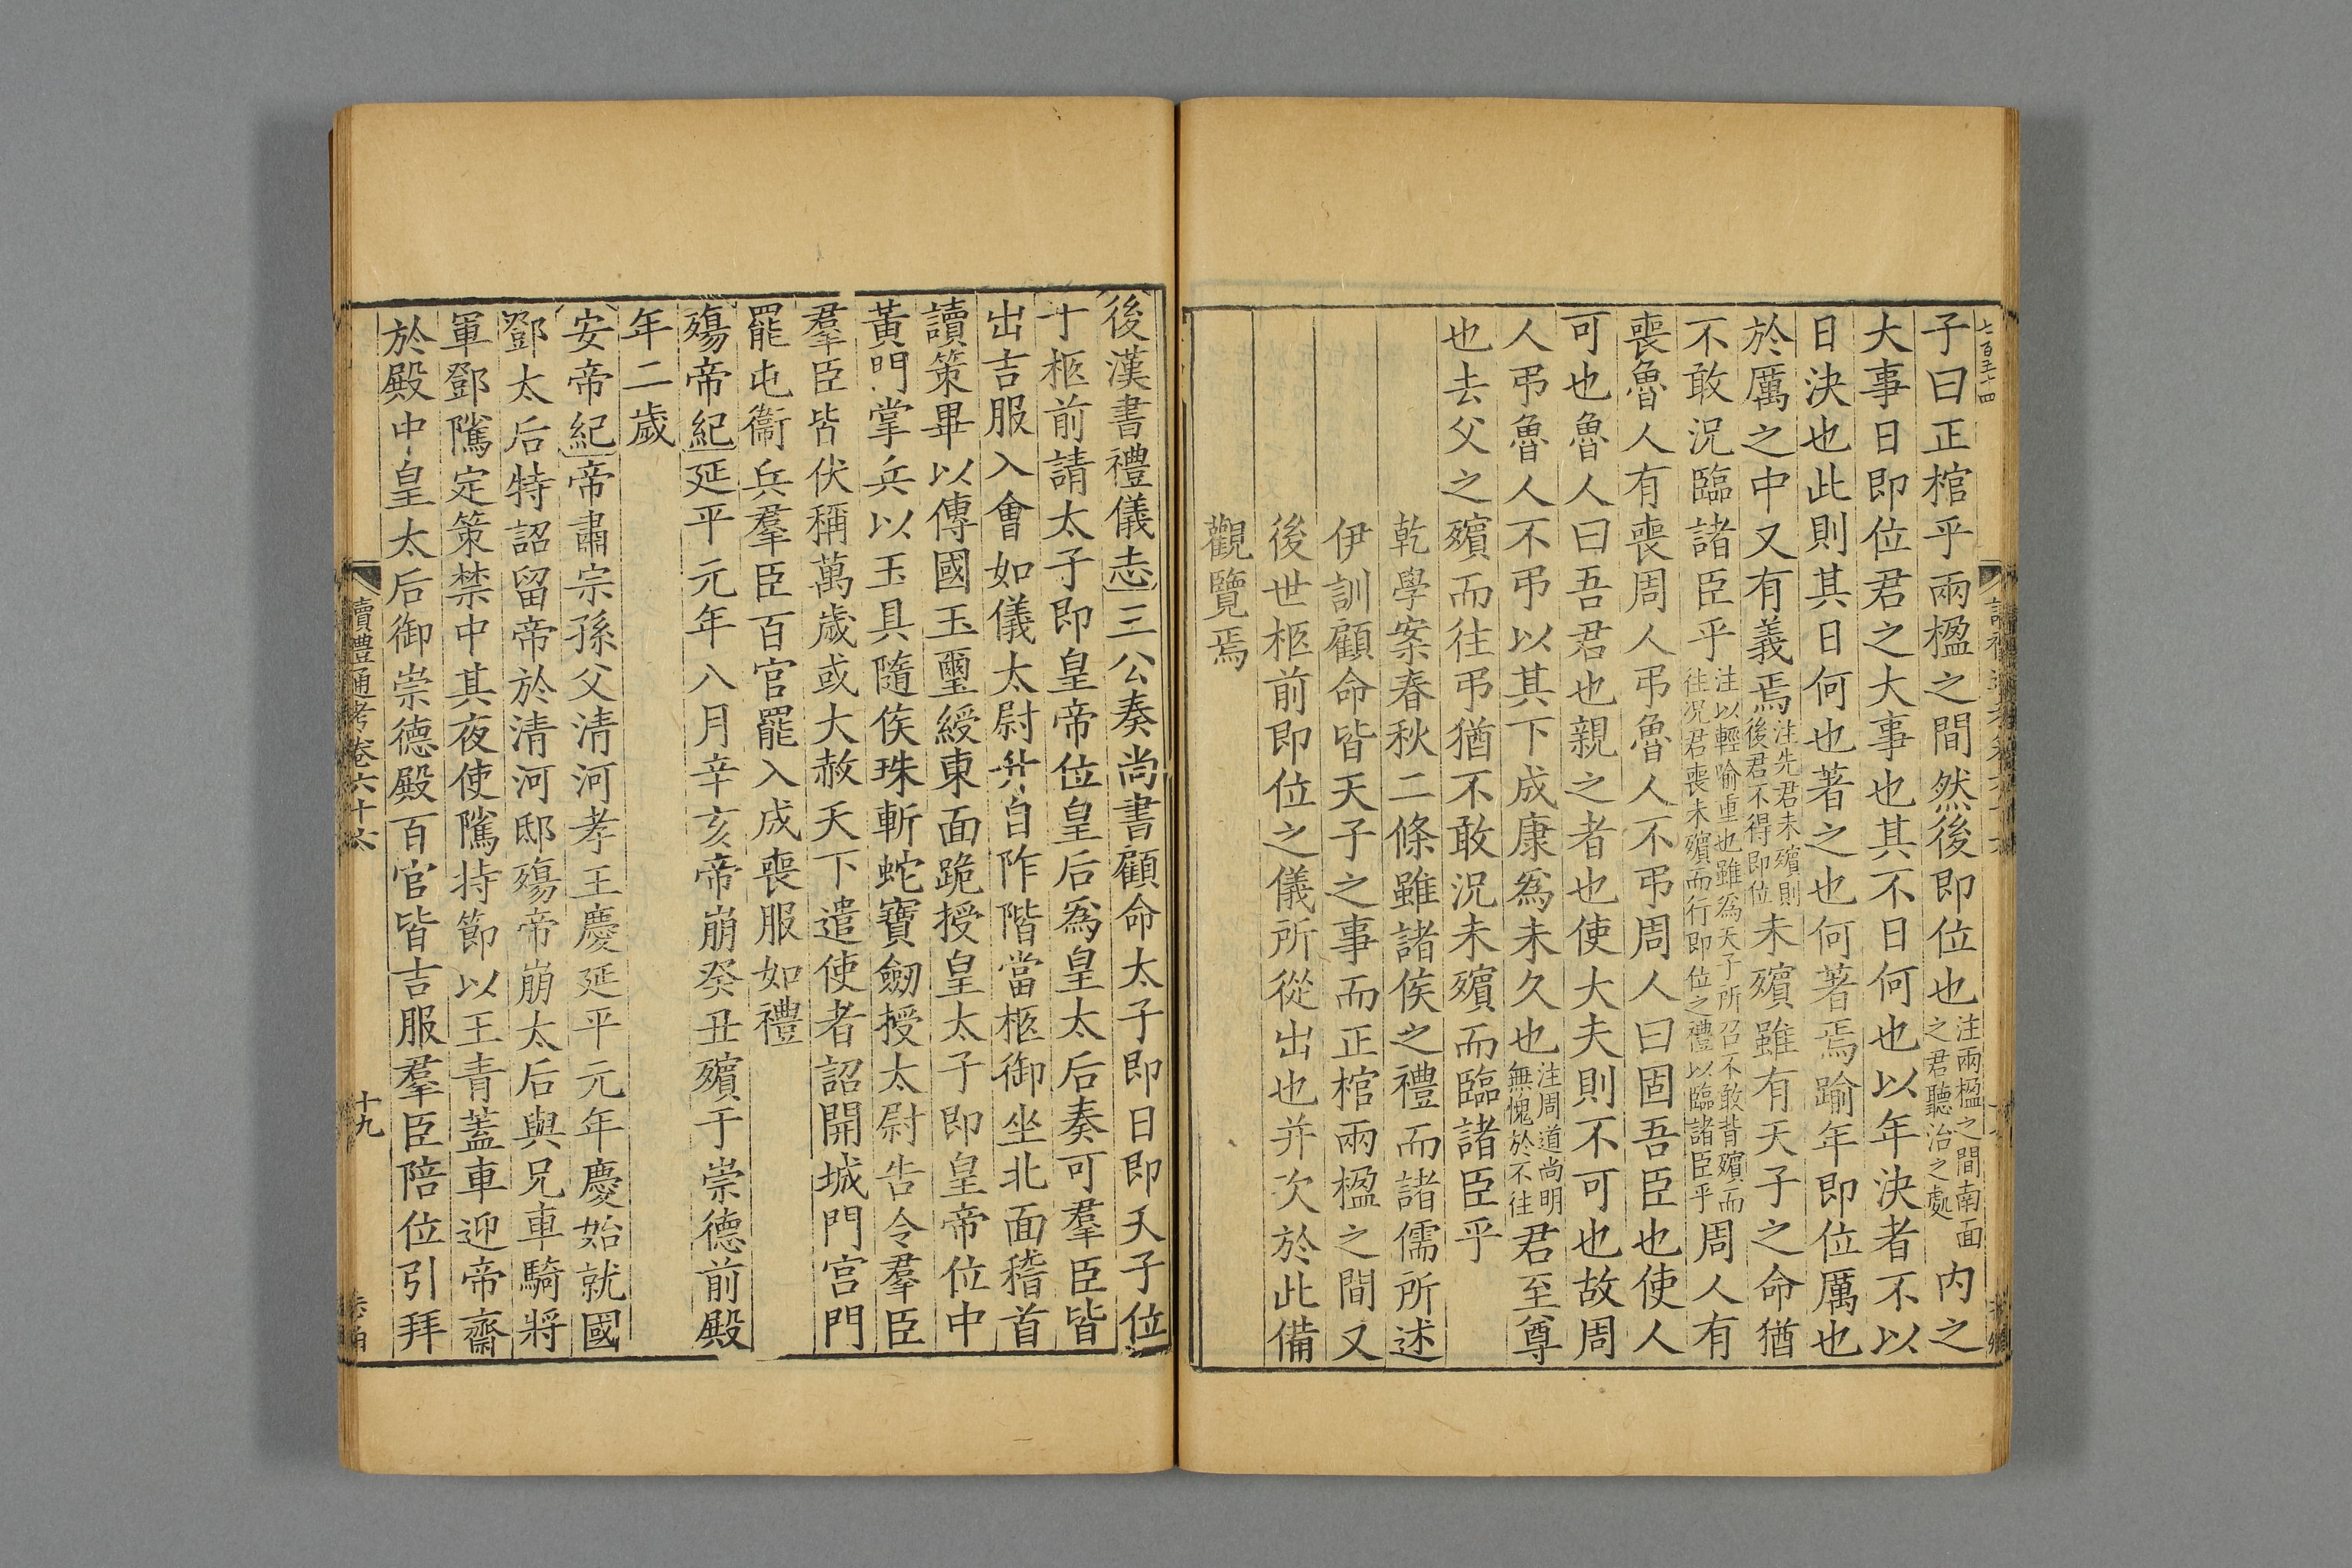 七百五十四
子曰正棺乎兩楹之間然後即位也注兩楹之間南面之君聽治之處内之
大事日即位君之大事也其不日何也以年決者不以
日決也此則其日何也著之也何著焉踰年即位厲也
於厲之中又有義焉注先君未殯則後君不得即位未殯雖有天子之命猶
不敢況臨諸臣乎注以輕喻重也雖爲天子所召不敢背殯而往況君喪未殯而行即位之禮以臨諸臣乎周人有
喪魯人有喪周人弔魯人不弔周人曰固吾臣也使人
可也魯人曰吾君也親之者也使大夫則不可也故周
人弔魯人不弔以其下成康爲未久也注周道尚明無愧於不往君至尊
也去父之殯而往弔猶不敢況未殯而臨諸臣乎
乾學案春秋二條雖諸侯之禮而諸儒所述
伊訓顧命皆天子之事而正棺兩楹之間又
後世柩前即位之儀所從出也并次於此備
觀覽焉
後漢書禮儀志三公奏尚書顧命太子即日即天子位
于柩前請太子即皇帝位皇后爲皇太后奏可羣臣皆
出吉服入會如儀太尉升自阼階當柩御坐北面稽首
讀策畢以傳國玉璽綬東面跪授皇太子即皇帝位中
黃門掌兵以玉具隨侯珠斬蛇寶劒授太尉告令羣臣
羣臣皆伏稱萬歲或大赦天下遣使者詔開城門宫門
罷屯衞兵羣臣百官罷入成喪服如禮
殤帝紀延平元年八月辛亥帝崩癸丑殯于崇德前殿
年二歲
安帝紀帝肅宗孫父清河孝王慶延平元年慶始就國
鄧太后特詔留帝於清河邸殤帝崩太后與兄車騎將
軍鄧隲定策禁中其夜使隲持節以王青蓋車迎帝齋
於殿中皇太后御崇德殿百官皆吉服羣臣陪位引拜
讀禮通考卷六十六
十九